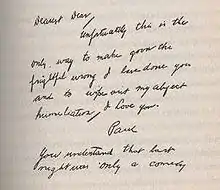 Dearest Dear,
Unfortuatly this is the
only way to make good the
frightful wrong I have done you
and to wipe out my abject
humiliation, I Love you.
Paul
You understand that last
night was only a comedy